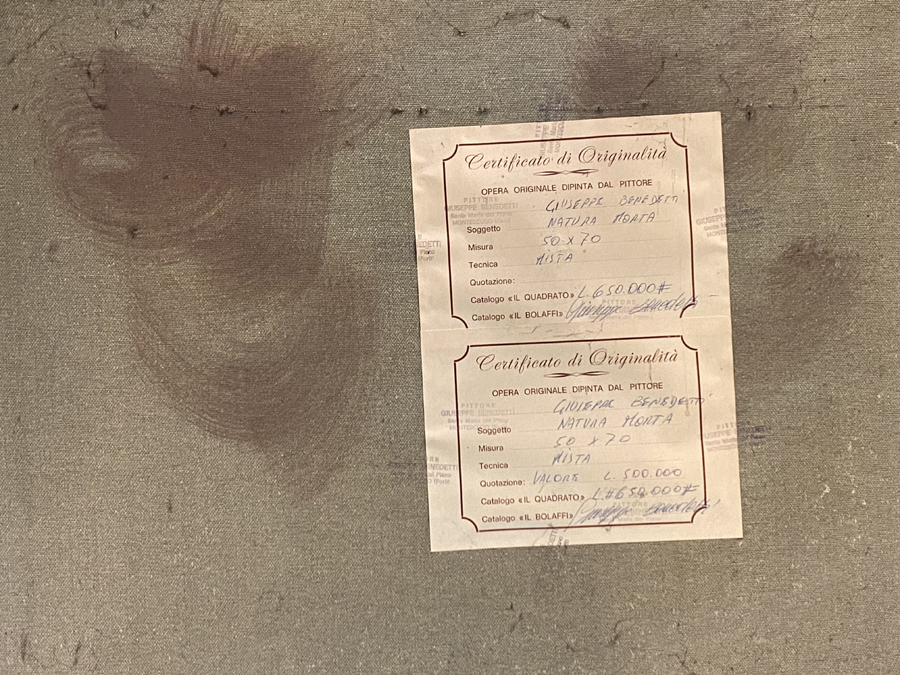 Certificato di Originalità
OPERA ORIGINALE DIPINTA DAL PITTORE
GIUSEPPE BENEDETTI
Soggetto NATURA MORTA
Misura 50 x 70
Tecnica MISTA
Quotazione:
Catalogo «IL QUADRATO» L. 650.000#
Catalogo «IL BOLAFFI» Giuseppe Benedetti
PITTORE
GIUSEPPE BENEDETTI
Santa Maria del Piano
Certificato di Originalità
OPERA ORIGINALE DIPINTA DAL PITTORE
GIUSEPPE BENEDETTI
Soggetto NATURA MORTA
Misura 50 x 70
Tecnica MISTA
Quotazione: VALORE L. 500.000
Catalogo «IL QUADRATO» L.#650.000#
Catalogo «IL BOLAFFI» Giuseppe Benedetti
PITTORE
GIUSEPPE BENEDETTI
Santa Maria del Piano